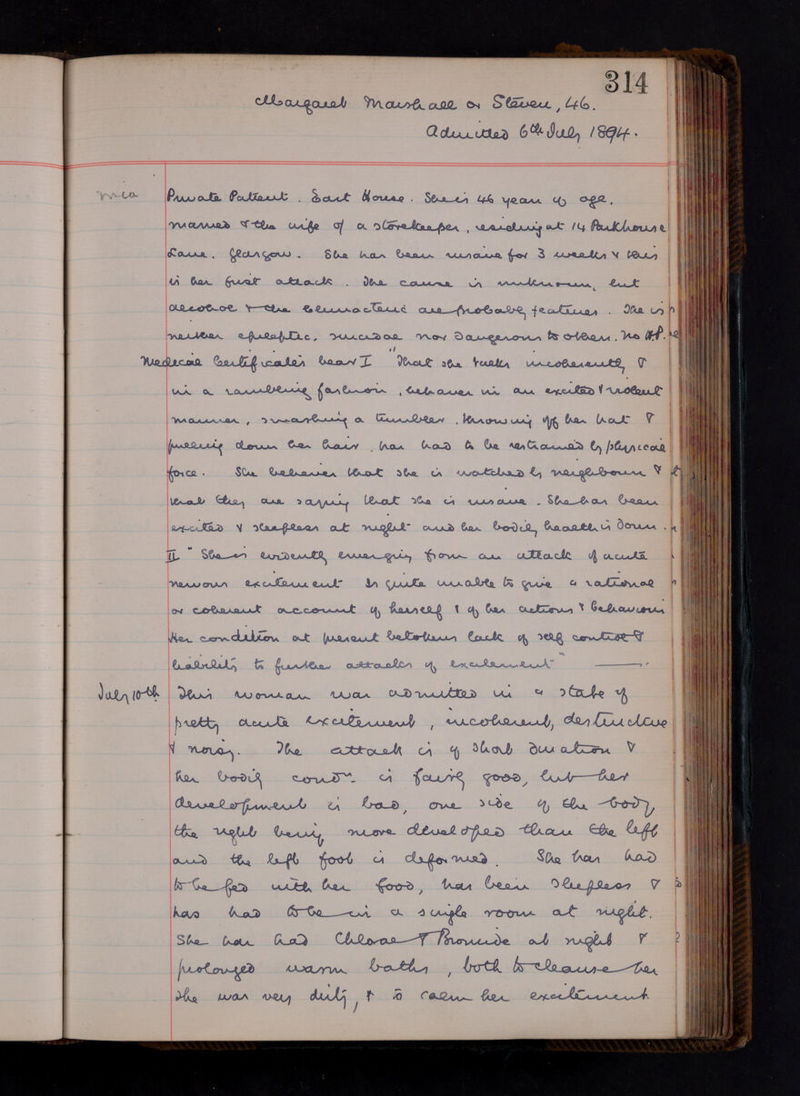 314
Margaret Marshall or Steven, 46.
Admitted 6th July 1894.
Private Patient. East House. She is 46 years of age,
married & the wife of a storekeeper, residing at 14 Parkhouse
Lane, Glasgow. She has been insane for 3 weeks & this
is her first attack. The cause is unknown, but
alcohol & the climacteric are probably features. She is
neither epileptic, suicidal nor dangerous to others. No
Medical Certificates bear I "That she talks incoherently &
in a rambling fashion, behaves in an excited & violent
manner, smashing a tumbler, throwing off her hat &
pulling down her hair, has had to be restrained by physical
force. She believes that she is watched by neighbours &
that they are saying that she is insane. She has been
excited & sleepless at night and her bodily health is down.
II "She is evidently emerging from an attack of acute
nervous excitement Is quite unable to give a rational
or coherent account of herself & of her actions & behaviour
Her condition at present betokens lack of self control &
liability to further attacks of excitement"
July 10th This woman was admitted in a state of
pretty acute excitement, incoherent, destructive
& noisy. The attack is of short duration &
her bodily condn. is fairly good, but her
development is bad, one side of the body,
the right being more developed than the left
and the left foot is deformed. She has had
to be fed with her food, has been sleepless &
has had to be in a single room at night.
She has had Chloral & Bromide at night &
prolonged warm baths, both to cleanse her
she was very dirty, & to calm her excitement